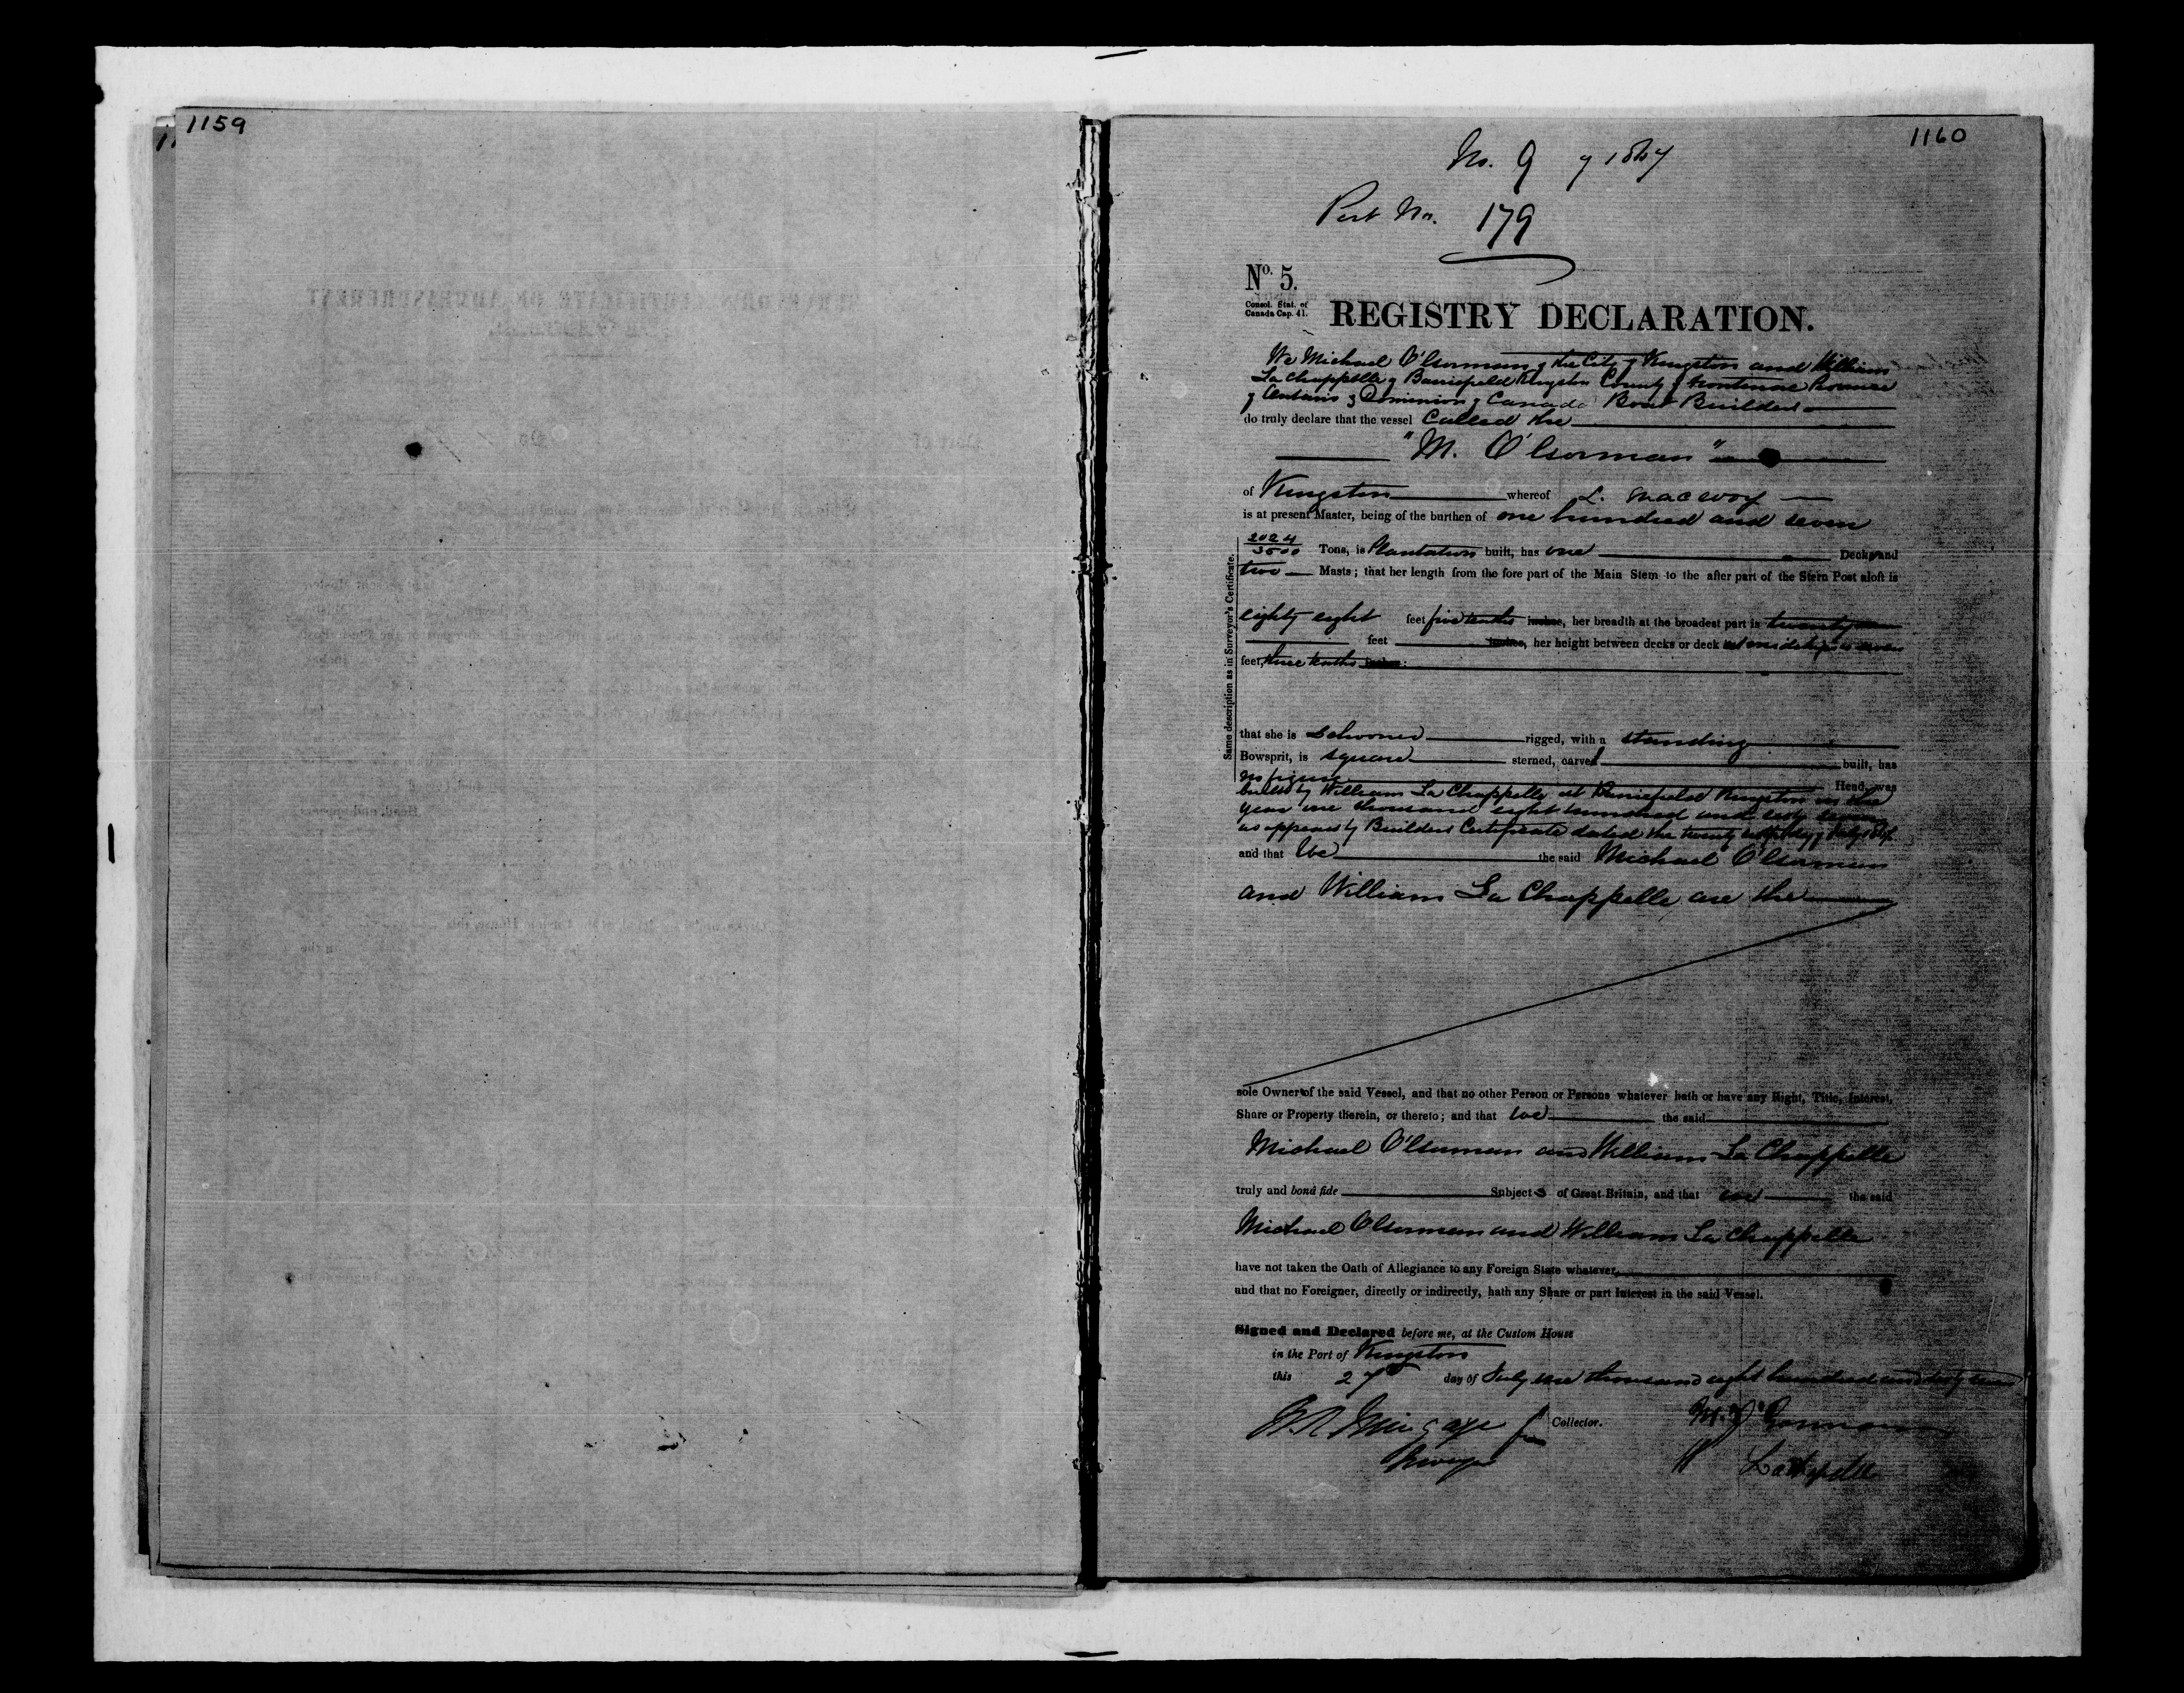 1159
1160
No. 9 of 1867
Port No. 179
No. 5.
Consol. Stat. of
Canada Cap. 41.
REGISTRY DECLARATION.
We Michael O'Gorman of the City of Kingston and William
La Chappelle of Barriefield Kingston County of Frontenac Province
of Ontario & Dominion of Canada Boat Builders
do truly declare that the vessel Called the
"M. O'Gorman"
of Kingston whereof L. Macevoy
is at present Master, being of the burthen of one hundred and seven
2024/3500 Tons, is Plantation built, has one Deck and
two Masts; that her length from the fore part of the Main Stem to the after part of the Stern Post aloft is
eighty eight feet five tenths inches, her breadth at the broadest part is twenty
feet inches, her height between decks or deck at midships is seven
feet, three tenths inches:
Same description as in Surveyor's Certificate.
that she is Schooner rigged, with a standing
Bowsprit, is square sterned, carvel built, has
No figure Head, was
built by William La Chappelle at Barriefield Kingston in the
year one thousand eight hundred and sixty seven
as appears by Builders Certificate dated the twenty day of July
and that We the said Michael O'Gorman
and William La Chappelle are the
sole Owners of the said Vessel, and that no other Person or Persons whatever hath or have any Right, Title, Interest,
Share or Property therein, or thereto; and that we the said
Michael O'Gorman and William La Chappelle
truly and bonâ fide Subjects of Great Britain, and that we the said
Michael O'Gorman and William La Chappelle
have not taken the Oath of Allegiance to any Foreign State whatever,
and that no Foreigner, directly or indirectly, hath any Share or part Interest in the said Vessel.
Signed and Declared before me, at the Custom House
in the Port of Kingston
this 27 day of July one thousand eight hundred and sixty seven
Collector.
M. O'Gorman
W Lachapelle